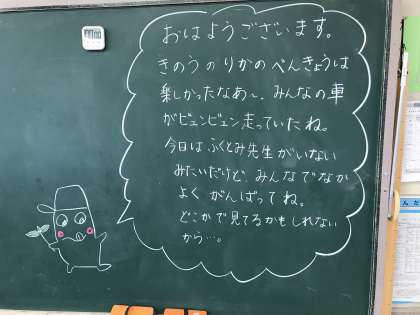 おはようございます。
きのうのりかのべんきょうは
楽しかったなあ～。みんなの車
がビュンビュン走っていたね。
今日はふくとみ先生がいない
みたいだけど、みんなでなか
よく がんばってね。
どこかで見てるかもしれない
から…。